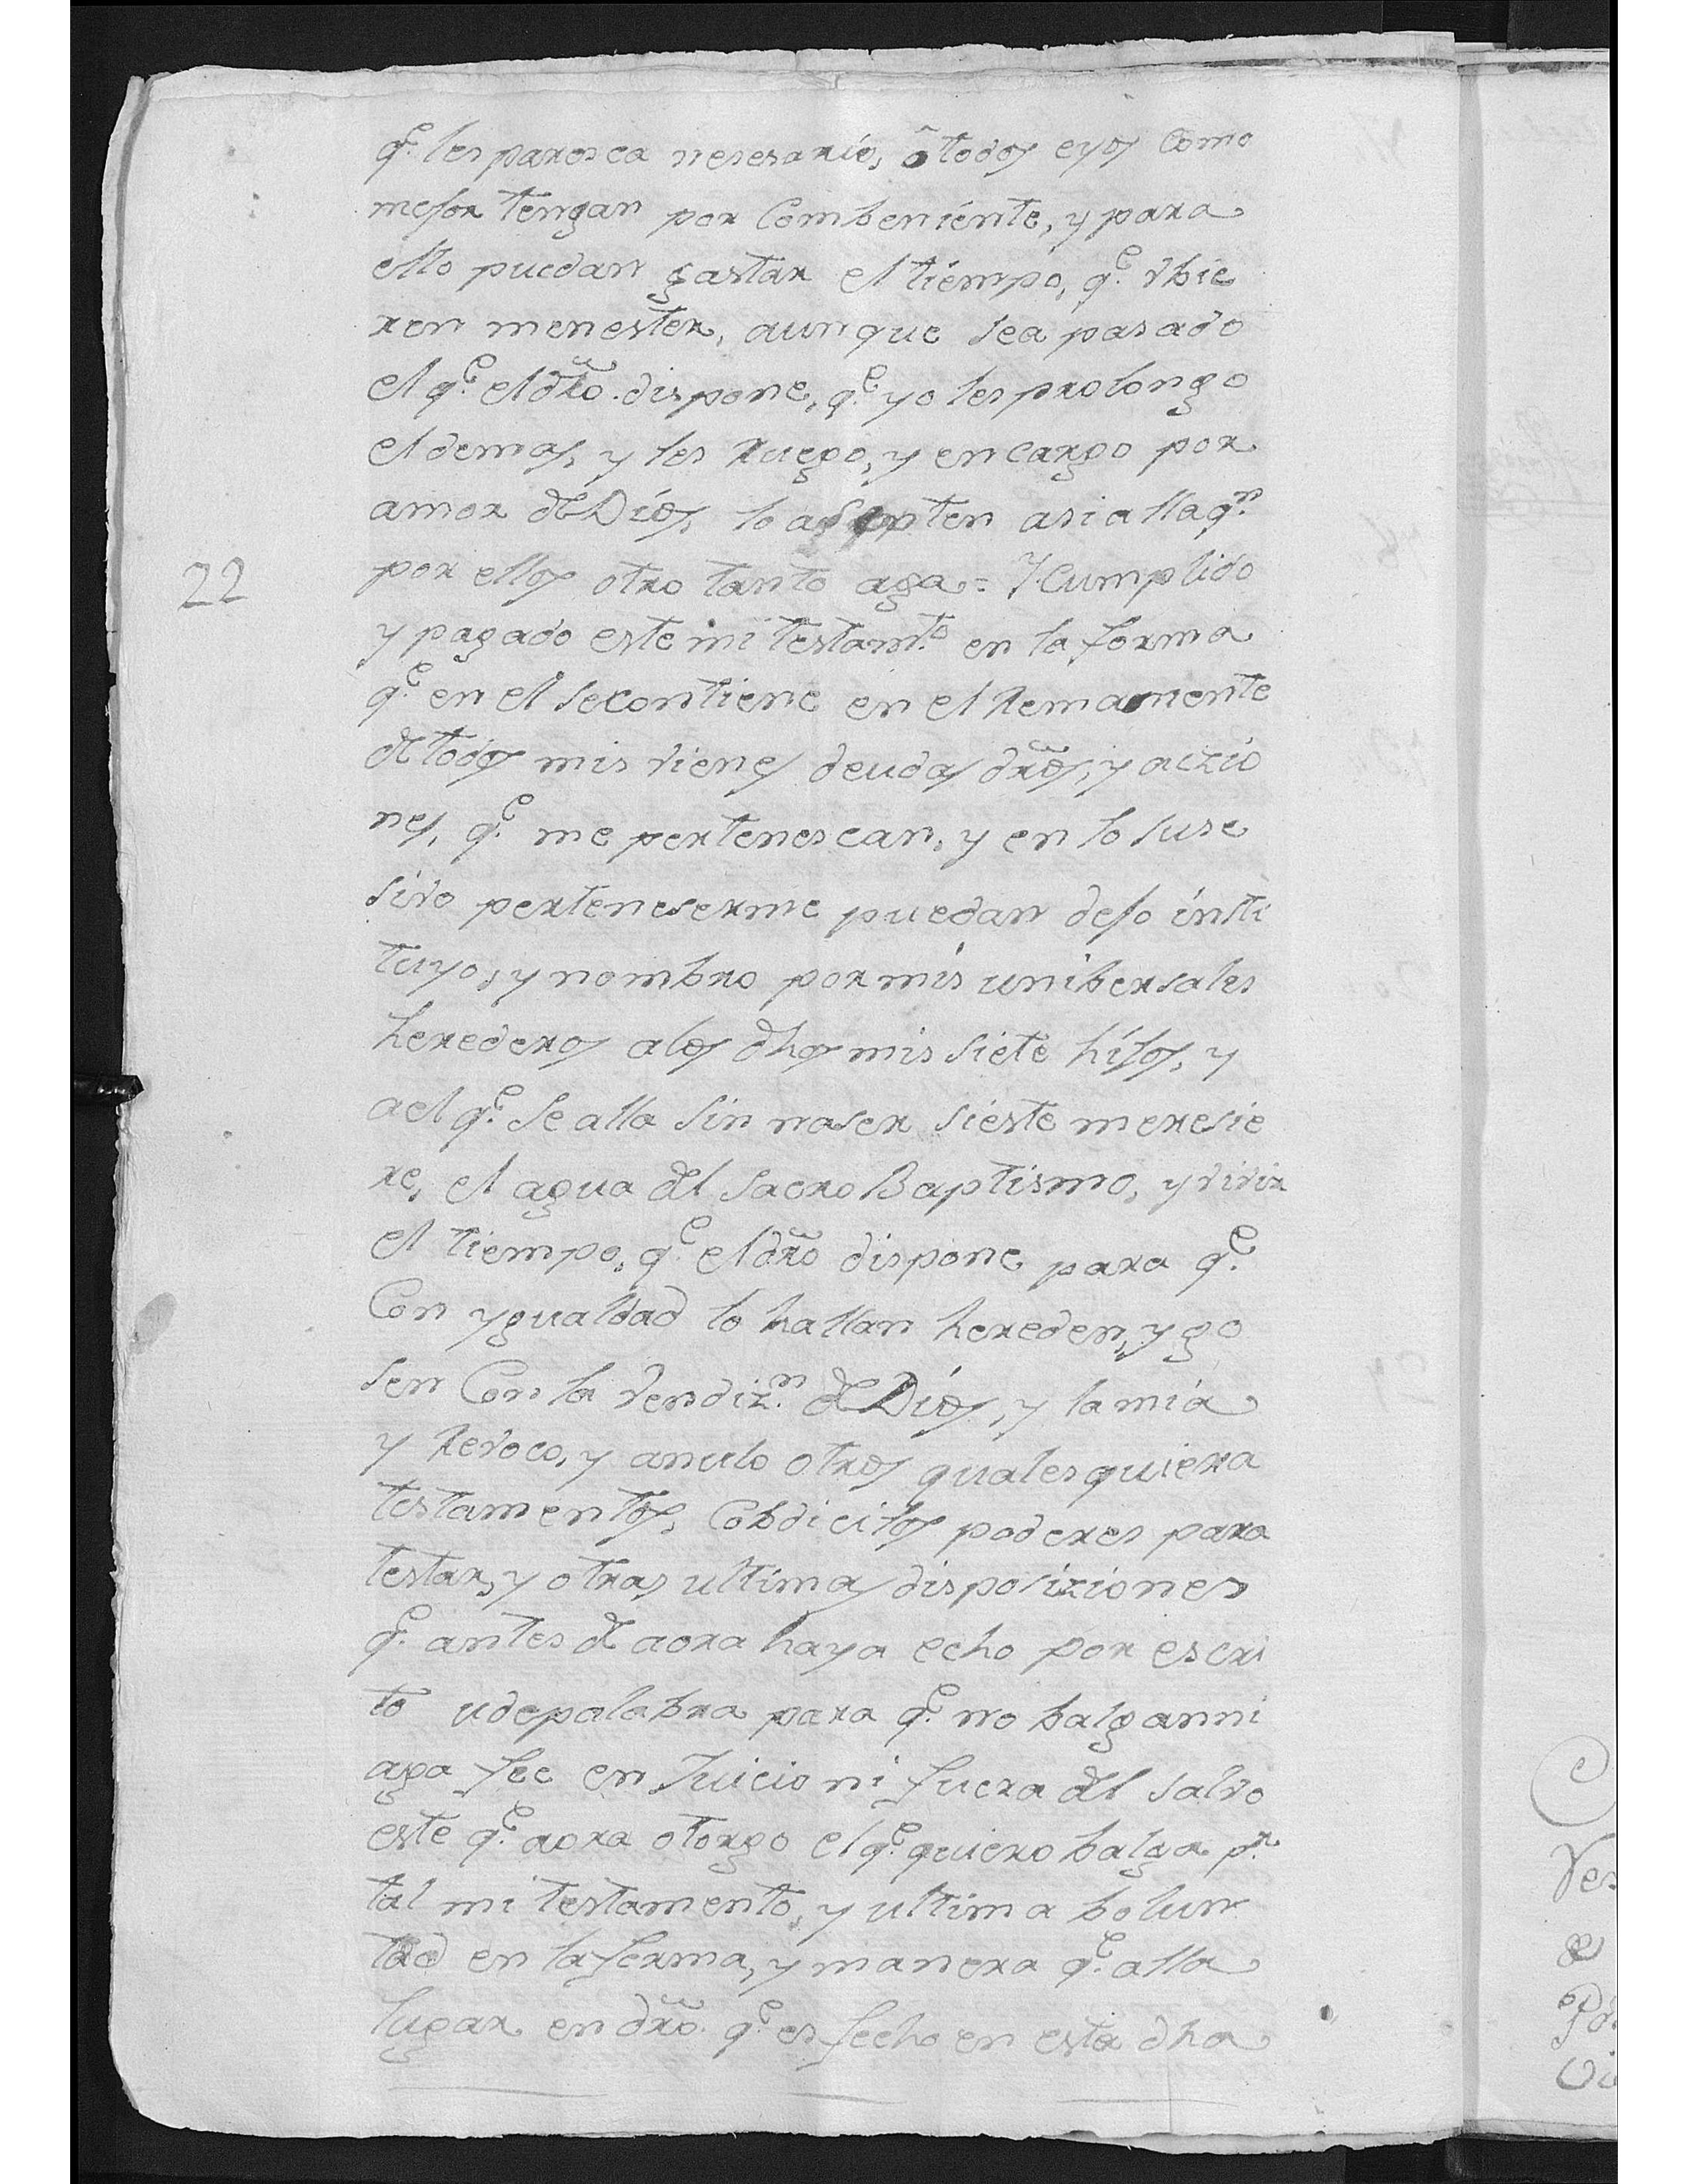 q.e les paresca nesesario, ô todos eyos como
mejor tengan por Combeniente, y para
ello puedan gastar el tiempo, q.e vbie
ren menester, aunque sea pasado
el q.e el dr̃o. dispone, q.e yo les prolongo
el demas, y les Ruego, y encargo por
amor de Dios, lo asepten asi alla q.n
22
por ellos otro tanto aga = Y Cumplido
y pagado este mi testam.to en la forma
q.e en el secontiene en el Remamente
de todos mis vienes deudas dr̃os, y aczio
nes, q.e me pertenescan, y en lo suse
sivo perteneserme puedan dejo insti
tuyo, y nombro por mis unibersales
herederos alos dhos mis siete hijos, y
ael q.e se alla sin naser sieste meresie
re, el agua del Sacro Baptismo, y vivir
el tiempo, q.e el dr̃o dispone para q.e
Con ygualdad lo hallan hereden, y go
sen Con la vendiz.n de Dios, y la mia
y Revoco, y anulo otros qualesquiera
testamentos, Cobdicilos poderes para
testar, y otras ultimas disposiziones
q.e antes de aora haya echo por escri
to udepalabra para q.e no balgan ni
aga fee en Juicio ni fuera del salvo
este q.e aora otorgo el q.e quiero balga p.r
tal mi testamento, y ultima bolun
tad en la forma, y manera q.e alla
lugar en dr̃o. q.e es fecho en esta dha
Ves